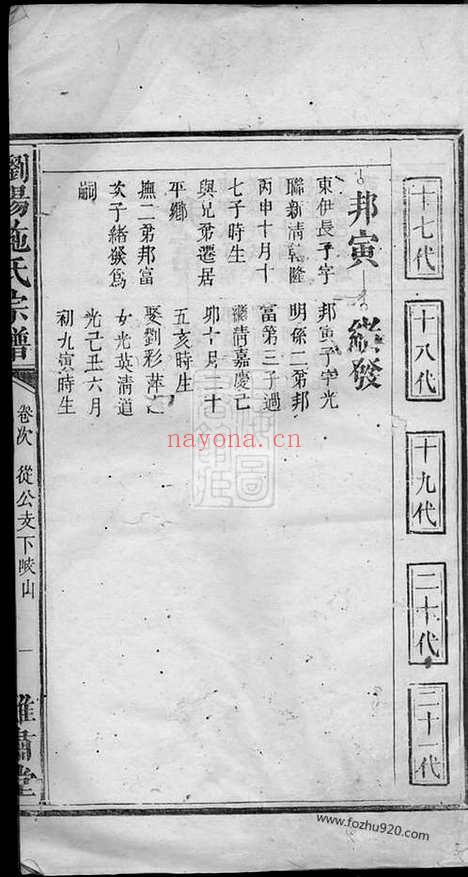 十七代
十八代
十九代
二十代
二十一代
邦寅
緒發
東伊長子字
聯新清乾隆
丙申十月十
七子時生
與兄弟遷居
平鄉
撫二弟邦富
次子緒發為
嗣
邦寅子字光
明係二弟邦
富第三子過
繼清嘉慶己
卯十月三十
五亥時生
娶劉彩華之
女光英清道
光己丑六月
初九寅時生
瀏陽施氏宗譜
卷次
從公支下
山
一
雍肅堂
nayona.cn
www.fozhu920.com